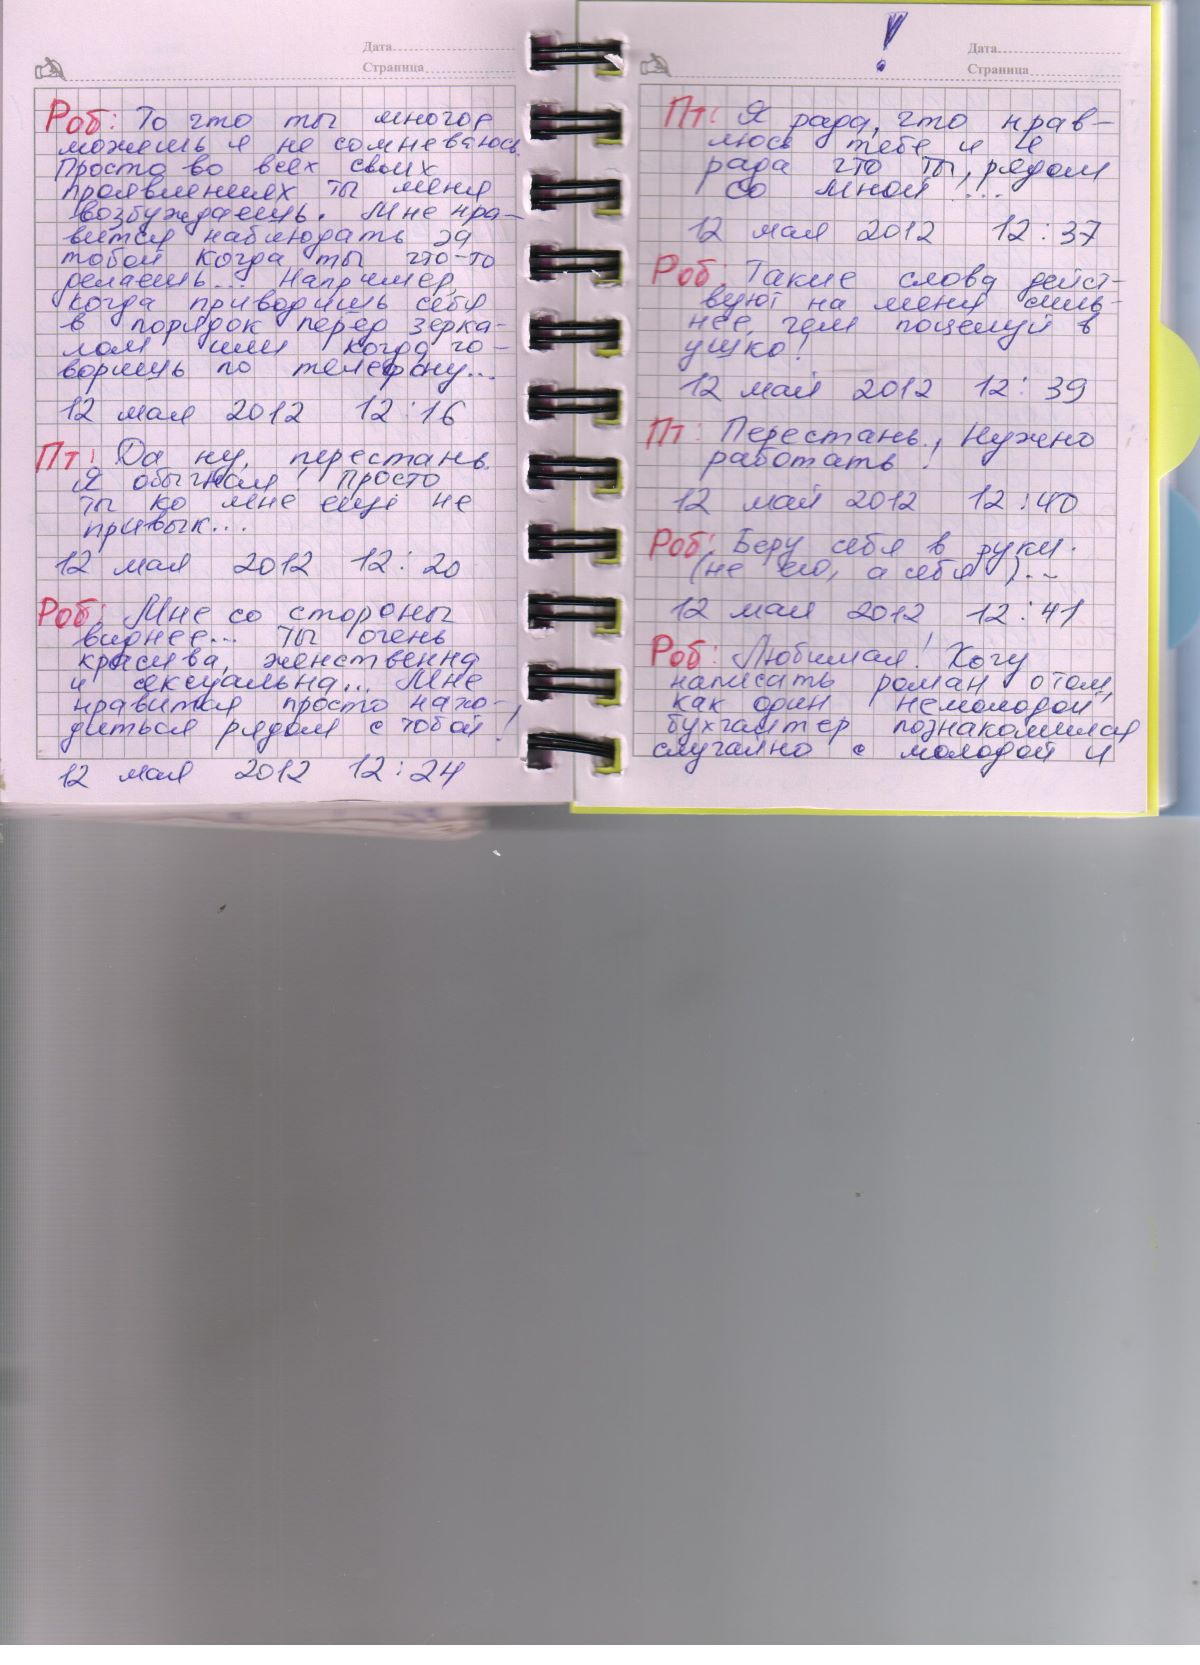 Дата
Страница
Роб: То что ты многое
можешь я не сомневаюсь.
Просто во всех своих
проявлениях ты меня
возбуждаешь. Мне нра-
вится наблюдать за
тобой когда ты что-то
делаешь... Например,
когда приводишь себя
в порядок перед зерка-
лом или когда го-
воришь по телефону...
12 мая 2012 12:16
Пт: Да ну, перестань.
Я обычная! Просто
ты ко мне ещё не
привык...
12 мая 2012 12:20
Роб: Мне со стороны
виднее... Ты очень
красива, женственна
и сексуальна... Мне
нравится просто нахо-
диться рядом с тобой!
12 мая 2012 12:24
!
Дата
Страница
Пт: Я рада, что нрав-
люсь тебе и я
рада что ты, рядом
со мной!...
12 мая 2012 12:37
Роб: Такие слова дейст-
вуют на меня силь-
нее, чем поцелуй в
ушко!
12 май 2012 12:39
Пт: Перестань, Нужно
работать!
12 май 2012 12:40
Роб: Беру себя в руки.
(не его, а себя)...
12 мая 2012 12:41
Роб: Любимая! Хочу
написать роман о том,
как один немолодой
бухгалтер познакомился
случайно с молодой и